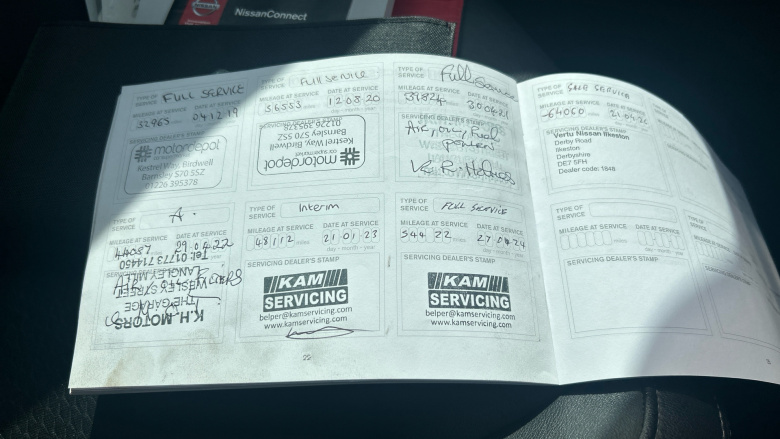 NISSAN
NissanConnect
TYPE OF SERVICE FULL SERVICE
MILEAGE AT SERVICE DATE AT SERVICE
32965 miles 041219
SERVICING DEALER'S STAMP
motordepot
Kestrel Way, Birdwell
Barnsley S70 5SZ
01226 395378
TYPE OF SERVICE Full Service
MILEAGE AT SERVICE DATE AT SERVICE
36553 miles 120820
day - month - year
SERVICING DEALER'S STAMP
motordepot
car supermarket
Kestrel Way, Birdwell
Barnsley S70 5SZ
01226 395378
TYPE OF SERVICE Full Service
MILEAGE AT SERVICE DATE AT SERVICE
miles 300421
SERVICING DEALER'S STAMP
Air, oil, Fuel
pollen
TYPE OF SERVICE SERVICE
MILEAGE AT SERVICE DATE AT SERVICE
64060 miles
day - month - year
SERVICING DEALER'S STAMP
Vertu Nissan Ilkeston
Derby Road
Ilkeston
Derbyshire
DE7 5FH
Dealer code: 1848
TYPE OF SERVICE A.
MILEAGE AT SERVICE DATE AT SERVICE
0422
SERVICING DEALER'S STAMP
K.H. MOTORS
THE GARAGE
WESLEY STREET
LANGLEY MILL
Tel: 01773 714450
TYPE OF SERVICE Interim
MILEAGE AT SERVICE DATE AT SERVICE
48112 miles 210123
day - month - year
SERVICING DEALER'S STAMP
KAM
SERVICING
belper@kamservicing.com
www.kamservicing.com
TYPE OF SERVICE FULL SERVICE
MILEAGE AT SERVICE DATE AT SERVICE
54422 miles 270424
day - month - year
SERVICING DEALER'S STAMP
KAM
SERVICING
belper@kamservicing.com
www.kamservicing.com
TYPE OF SERVICE
MILEAGE AT SERVICE DATE AT SERVICE
miles
day - month - year
SERVICING DEALER'S STAMP
22